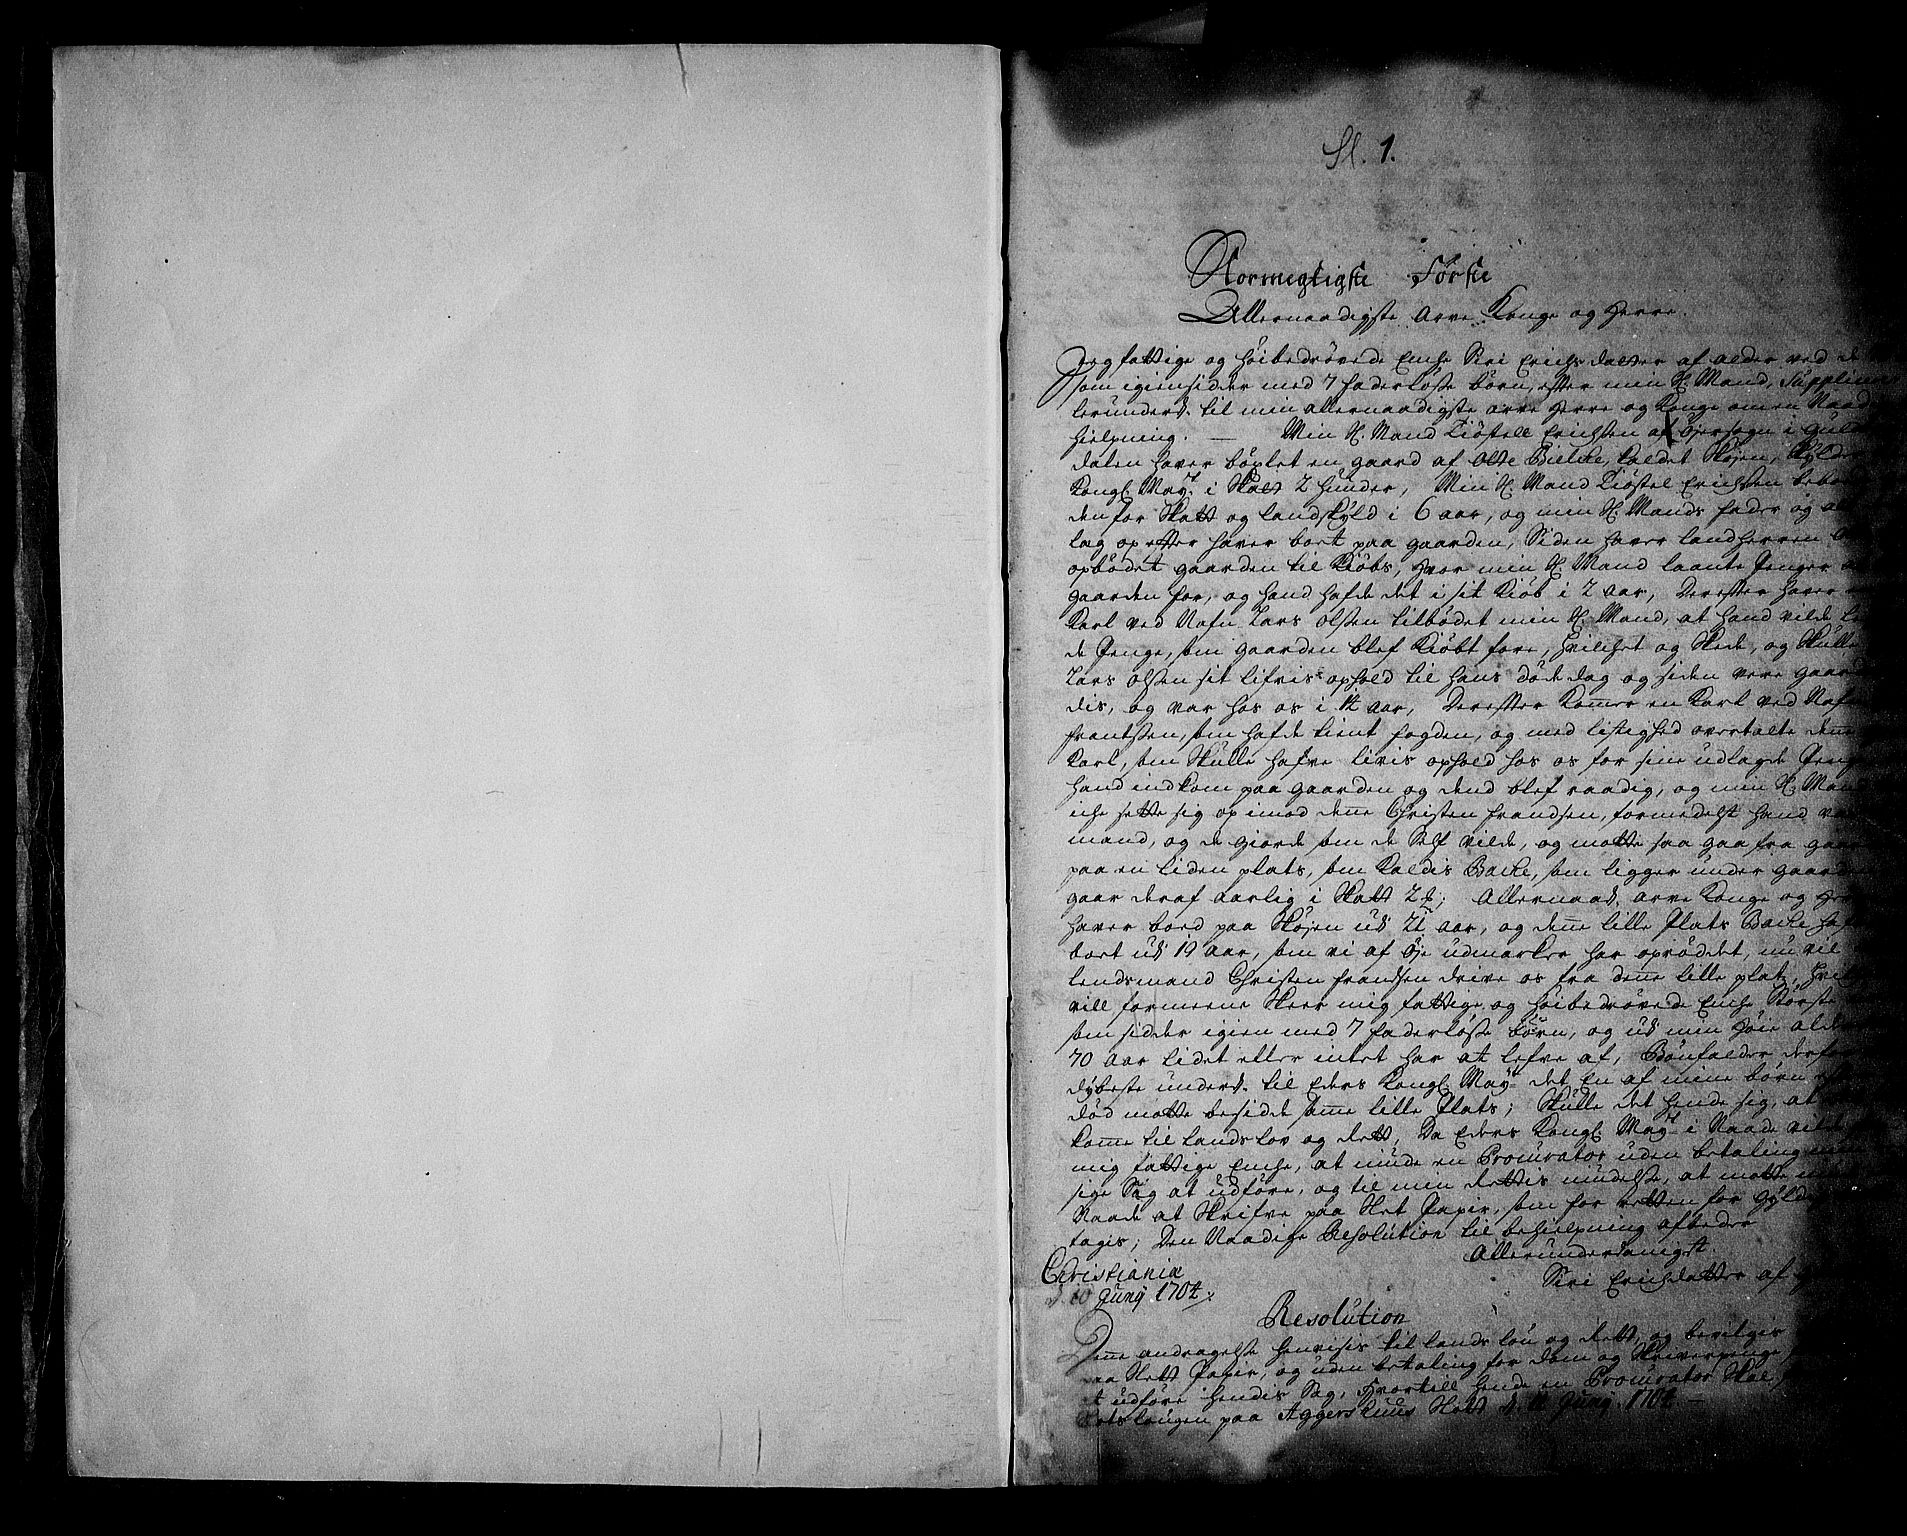 Sl. 1.
Stormegtigste Første
Allernaadigste Arve Konge og Herre.
Jeg fattige og høibedrøvede Enche Siri Erichsdatter af alder ved de
som igiensidder med 7 faderløsse børn, efter min Sl. Mand, Supplicer
lerunderd. til min allernaadigste arve Herre og Konge om en Naad
hielpning. — Min Sl. Mand Kiøstell Erichsen af Øjersogn i Guld
dalen haver bøxlet en gaard af Otte Bielche, kaldet Skøjen, skylder
Kongl. Mayt. i Skatt 2 hunder, Min Sl. Mand Kiøstel Erichsen bebo
den for Skatt og landskyld i 6 aar, og min Sl. Mands fader og
læg op efter haver boet paa gaarden, Siden haver landherren
opbødet gaarden til Kiøbs, hvor min Sl. Mand laante Penger
gaarden for, og hand hafde det i sit Kiøb i 2 aar, Derefter haver
Karl ved Nafn Lars Olssen tilbødet min Sl. Mand, at hand vilde
de Penge, som gaarden blef Kiøbt fore, hvilchet og Skede, og Skulle
Lars Olssen sit lifvis ophold til hans døde dag og siden vere gaar
dis, og var hos os i 1½ aar, Derefter Kommer en Karl ved Nafn
Frantssen, som hafde tient fogden, og med listighed overtalte denne
Karl, som Skulle hafve livis ophold hos os for sine udlagde Peng
hand indkom paa gaarden og dend blef raadig, og min Sl. Mand
iche sette sig op imod denne Christen Frandsen, formedelst hand va
mand, og de giorde som de Self vilde, og motte saa gaa fra gaar
paa en liden plats, som Kaldis Bache, som ligger under gaarden
gaar deraf aarlig i Skatt 2 ; Allernaad. arve Konge og Her
haver boed paa Skøjen ud 21 aar, og denne lille Plats Bache haf
boet ud 19 aar, som vi af Øje udmarker har oprøddet, nu vil
lendsmand Christen Frandsen drive os fra denne lille plats, hvil
vill formeene Skeer mig fattige og høibedrøvede Enche Største
som sidder igien med 7 faderløsse børn, og ud min høie alder
70 aar lidet eller intet har at lefve af, Bønfalder derfor
dybeste underd. til Eders Kongl. Mayt. det En af mine børn
død motte besidde samme lille Plats; Skulle det hende sig, at
komme til landslov og Rett, Da Eders Kongl. Mayt. i Naade vilde
mig fattige Enche, at niude en Procurator uden betaling
sige Sag at udføre, og til min Rettis nydelse, at motte
Naade at Skrifve paa Slet Papir, som for retten for gyldig
tagis; Den Naadige Resolution til behielpning afbeder
Allerunderdanigst.
Christiania
d. 10 Junij 1704
Siri Erichsdatter af
Resolution
Denne andragelse henvisis til lands lou og Rett, og bevilgis
paa Slett Papir, og uden betaling for dom og Skriverpenge,
at udføre hendis Sag, Hvortill hende en Procurator Skal
Slotslougen paa Aggershuus Slott d. 10 Junij 1704 —